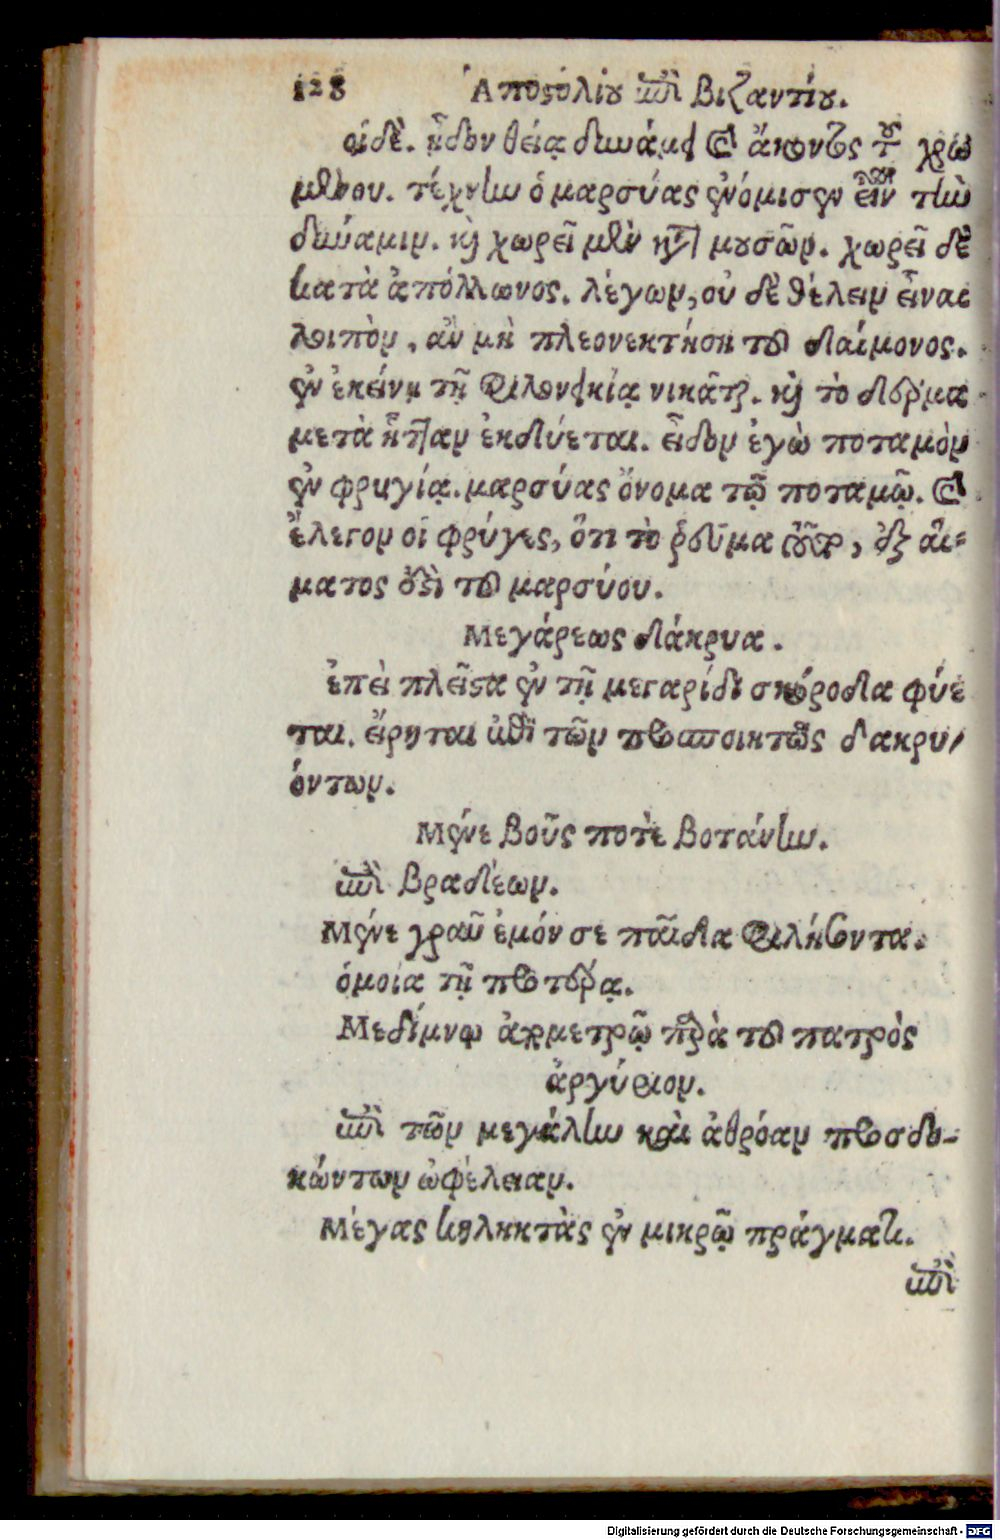 128 Ἀποστολίου τοῦ βιζαντίου.
οἱ δὲ. ᾖδον θείᾳ δυνάμει καὶ ἄκοντος τοῦ χρω
μένου. τέχνην ὁ μαρσύας ἐνόμισεν εἶναι τὴν
δύναμιν. καὶ χωρεῖ μὲν κατὰ μουσῶν. χωρεῖ δὲ
κατὰ ἀπόλλωνος. λέγων, οὐ δὲ θέλειν εἶναι
λοιπὸν, ἂν μὴ πλεονεκτήσῃ τοῦ δαίμονος.
ἐν ἐκείνῃ τῇ φιλονεικίᾳ νικᾶται. καὶ τὸ δέρμα
μετὰ ἧτταν ἐκδύεται. εἶδον ἐγὼ ποταμὸν
ἐν φρυγίᾳ. μαρσύας ὄνομα τῷ ποταμῷ. καὶ
ἔλεγον οἱ φρύγες, ὅτι τὸ ῥεῦμα , ἐξ αἵ-
ματος ἐστὶ τοῦ μαρσύου.
Μεγάρεως δάκρυα.
ἐπεὶ πλεῖστα ἐν τῇ μεγαρίδι σκόροδα φύε
ται. εἴρηται ἐπὶ τῶν προσποιητῶς δακρυ-
όντων.
Μένε βοῦς ποτὲ βοτάνην.
ἐπὶ βραδέων.
Μένε γραῦ ἐμόν σε παῖδα φιλήσοντα.
ὁμοία τῇ προτέρᾳ.
Μεδίμνῳ ἀπομετρῷ παρὰ τοῦ πατρὸς
ἀργύριον.
ἐπὶ τῶν μεγάλην καὶ ἀθρόαν προσδο-
κώντων ὠφέλειαν.
Μέγας κηληκτὰς ἐν μικρῷ πράγματι.
ἐπὶ
Digitalisierung gefördert durch die Deutsche Forschungsgemeinschaft - DFG